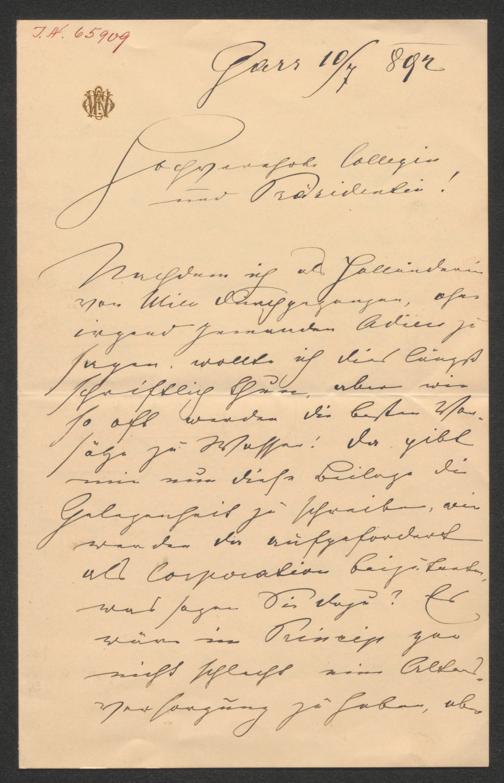 I.N. 65909
Gars 10/7 892
Hochverehrte Collegin
und Präsidentin!
Nachdem ich als Holländerin
von Wien durchgegangen, ohne
irgend jemanden Adieu zu
sagen, wollte ich dies längst
schriftlich thun, aber wie
so oft werden die besten Vor-
sätze zu Wasser! Da gibt
mir nun diese Beilage die
Gelegenheit zu schreiben, wir
werden da aufgefordert
als Corporation beizutreten,
was sagen Sie dazu? Es
wäre im Princip gar
nicht schlecht eine Alters-
versorgung zu haben, aber